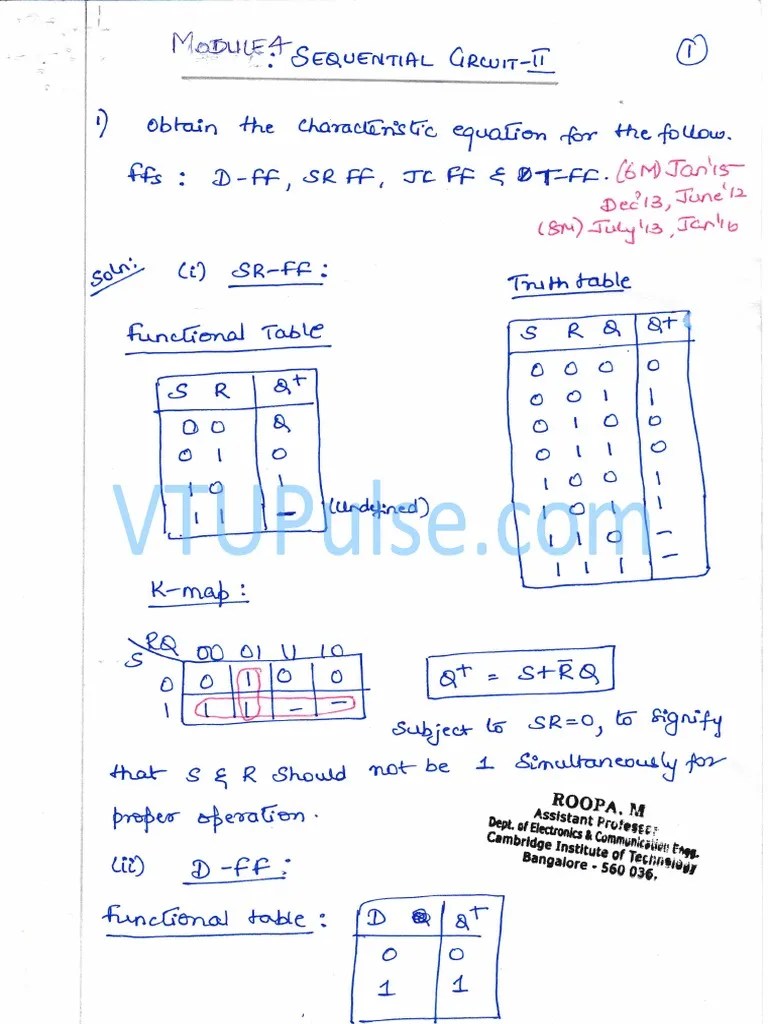 MODULE 4: SEQUENTIAL CIRCUIT-II
1
1) Obtain the characteristic equation for the follow.
ffs : D-ff, SR ff, JK ff & T-ff. (6M) Jan'15
Dec'13, June'12
(8M) July'13, Jan'16
Soln: (i) SR-ff :
Truth table
S R Q Q+
0 0 0 0
0 0 1 1
0 1 0 0
0 1 1 0
1 0 0 1
1 0 1 1
1 1 0 -
1 1 1 -
Functional Table
S R Q+
0 0 Q
0 1 0
1 0 1
1 1 - (undefined)
VTUPulse.com
K-map :
S RQ 00 01 11 10
0 0 1 0 0
1 1 1 - -
Q+ = S+R̅Q
Subject to SR=0, to signify
that S & R should not be 1 simultaneously for
proper operation.
ROOPA. M
Assistant Professor
Dept. of Electronics & Communication Engg.
Cambridge Institute of Technology
Bangalore - 560 036.
(ii) D-ff :
functional table :
D Q+
0 0
1 1